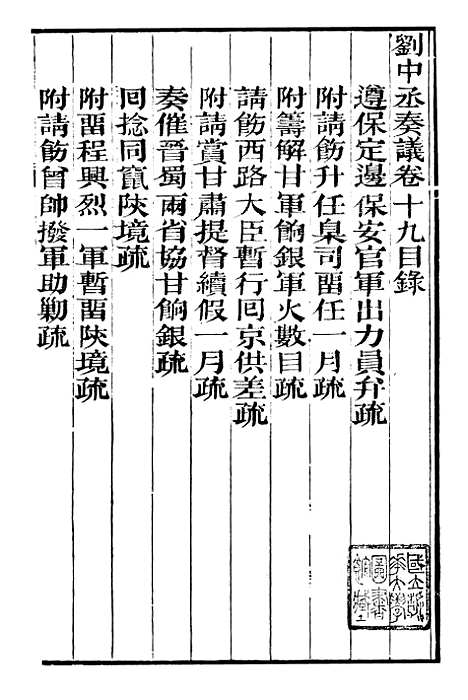 劉中丞奏議卷十九目錄
遵保定邊保安官軍出力員弁疏
附請飭升任臬司畱任一月疏
附籌解甘軍餉銀軍火數目疏
請飭西路大臣暫行囘京供差疏
附請賞甘肅提督續假一月疏
奏催晉蜀兩省協甘餉銀疏
囘捻同竄陝境疏
附畱程興烈一軍暫畱陝境疏
附請飭曾帥撥軍助勦疏